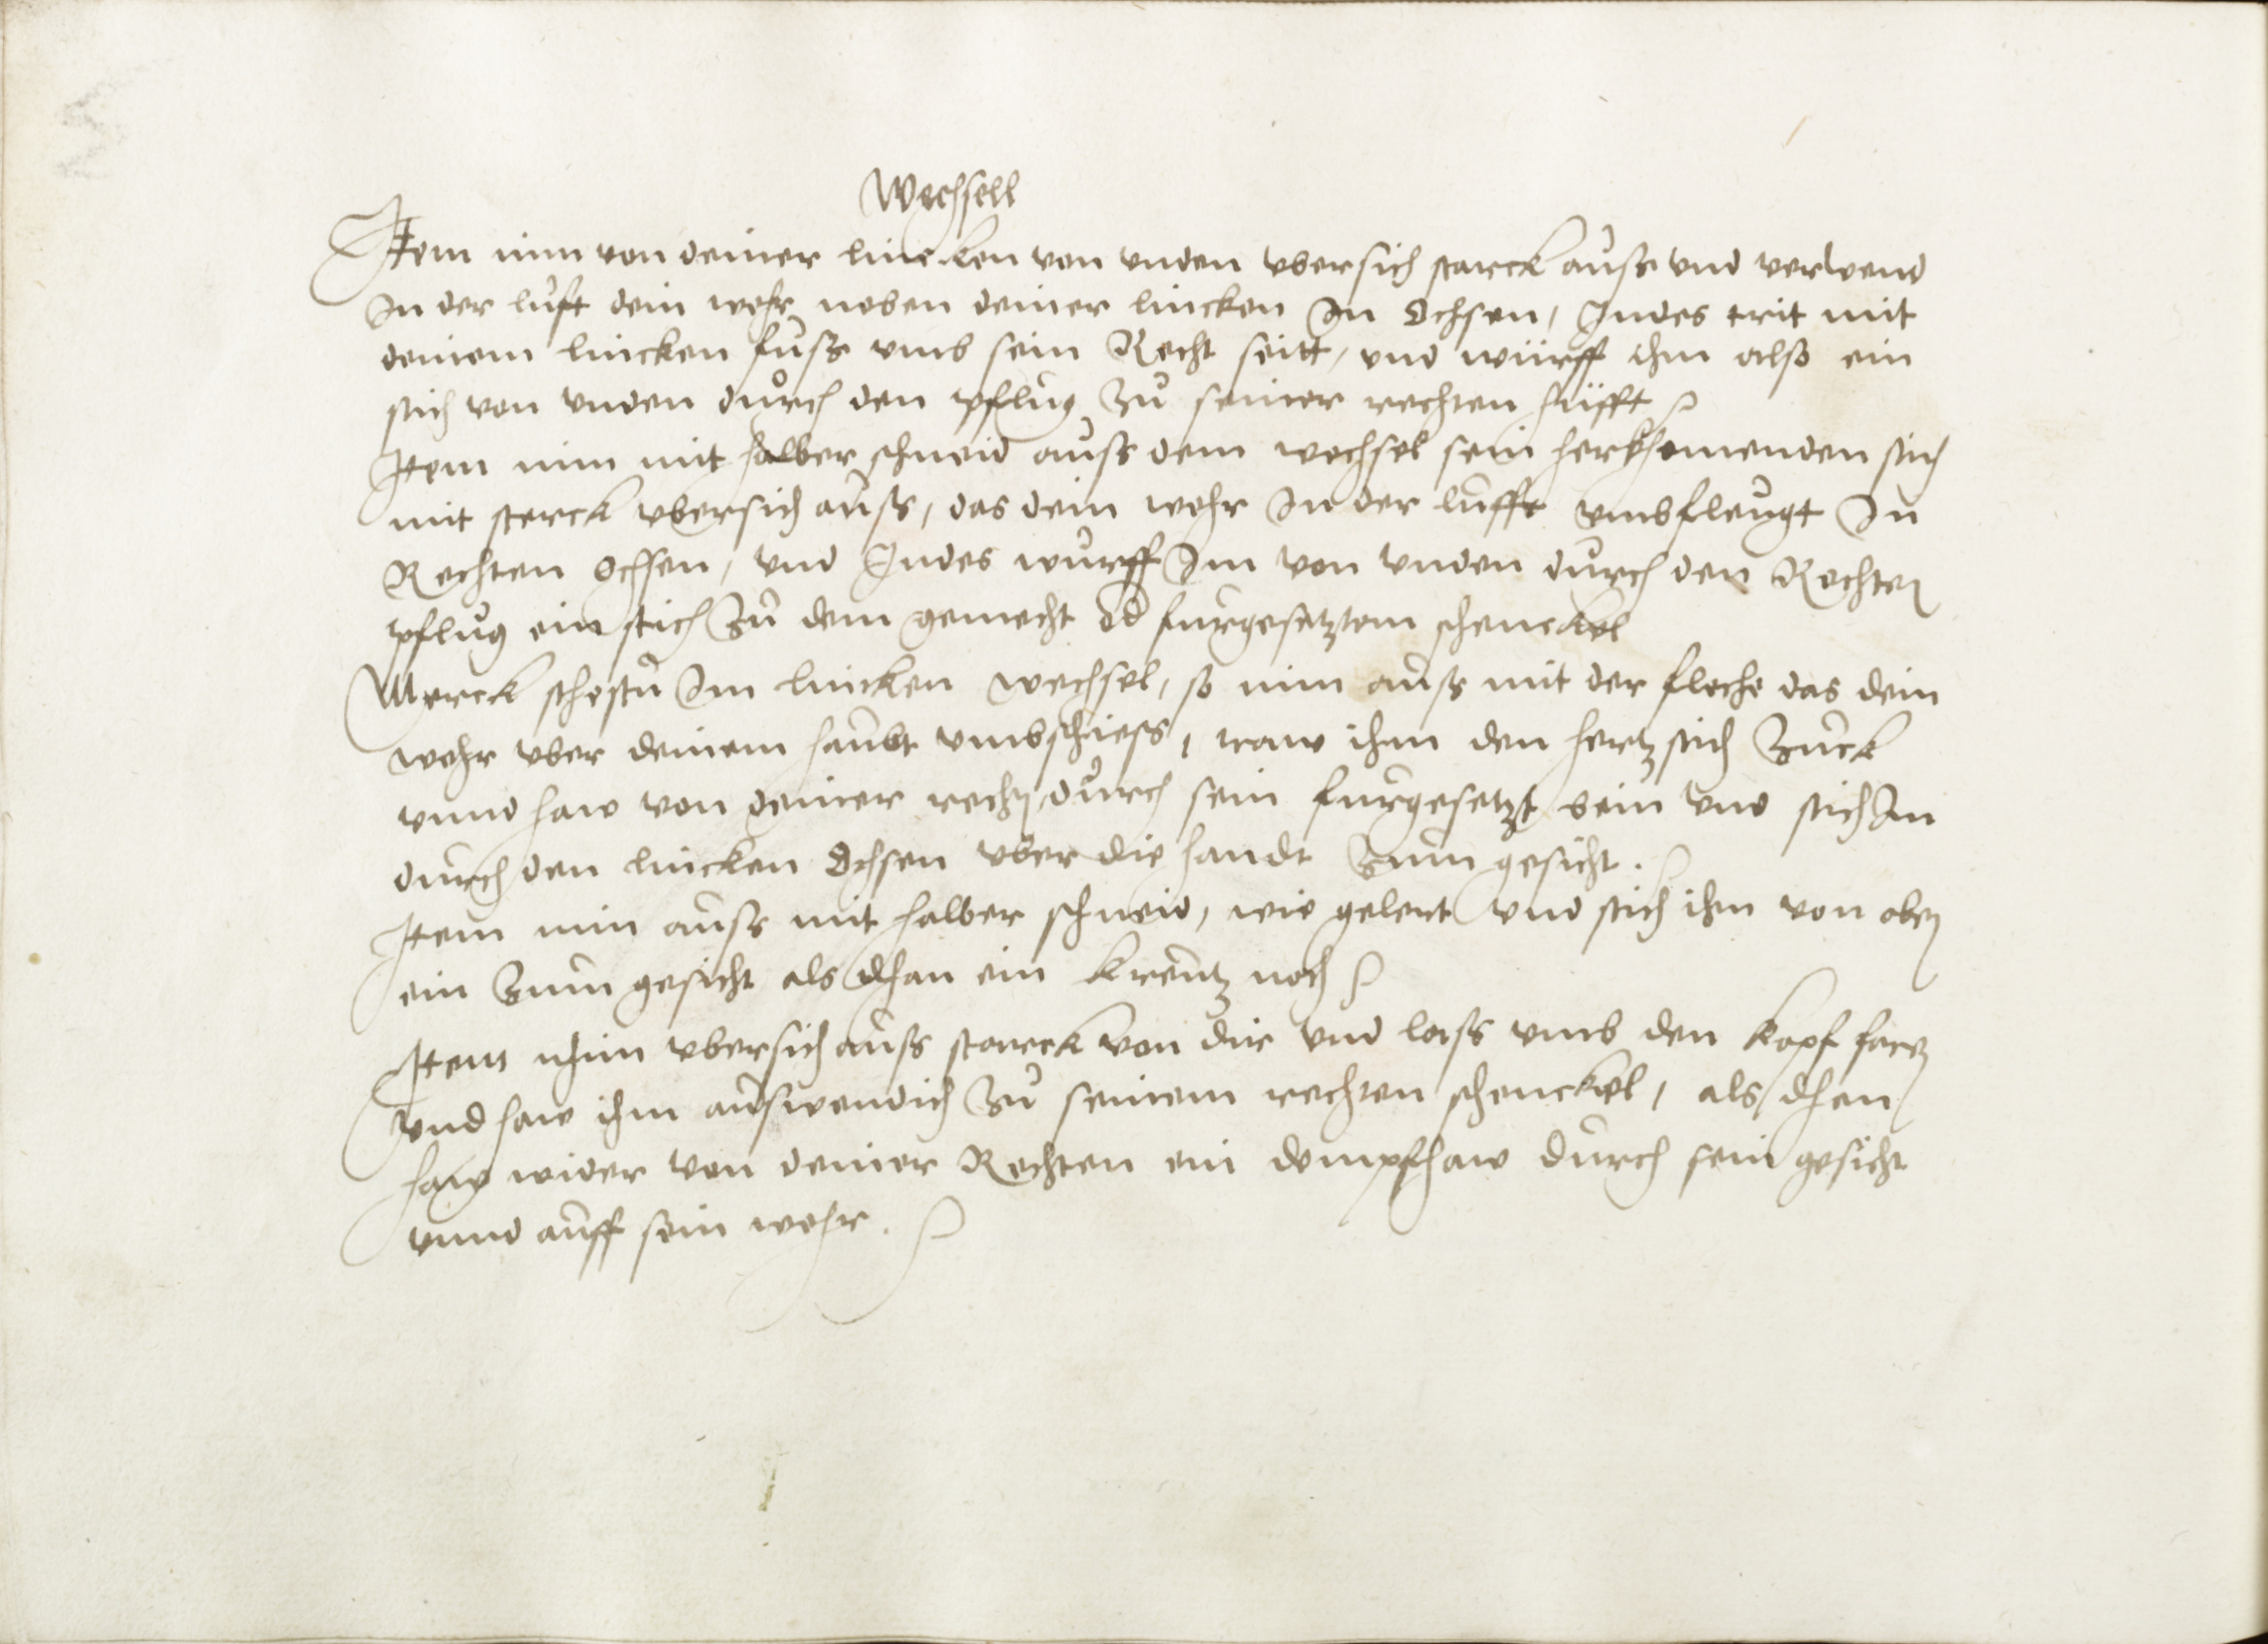 Wechsell
Item nim von deiner lincken von unden ubersich starck auß und verwend
In der luft dein wehr neben deiner lincken In Ochsen, Indes trit mit
deinem lincken fuß umb sein Recht seitt, und würff ihm also ein
stich von unden durch den pflug zu seiner rechten hüfft
Item nim mit halber schneid auß dem wechsel sein herkhomenden stich
mit sterck ubersich auß, das dein wehr In der lufft umbfleugt In
Rechten Ochsen, und Indes wurff Im von unden durch den Rechten
pflug ein stich zu dem gemecht od furgesetztem schenckel
Merck sthestu Im lincken wechsel, so nim auß mit der fleche das dein
wehr uber deinem haubt umbschiess, traw ihm den hertzstich zuck
unnd haw von deiner rechn durch sein furgesetzt bein und stich Im
durch den lincken Ochsen uber die handt zum gesicht.
Item nim auß mit halber schneid, wie gelert und stich ihm von oben
ein zum gesicht als dhan ein kreutz noch
Item nhim ubersich auß starck von dir und laß umb den kopf faren
und haw ihm außwendich zu seinem rechten schenckel, als dhan
haw wider von deiner Rechten ein dempfhaw durch sein gesicht
unnd auff sein wehr.